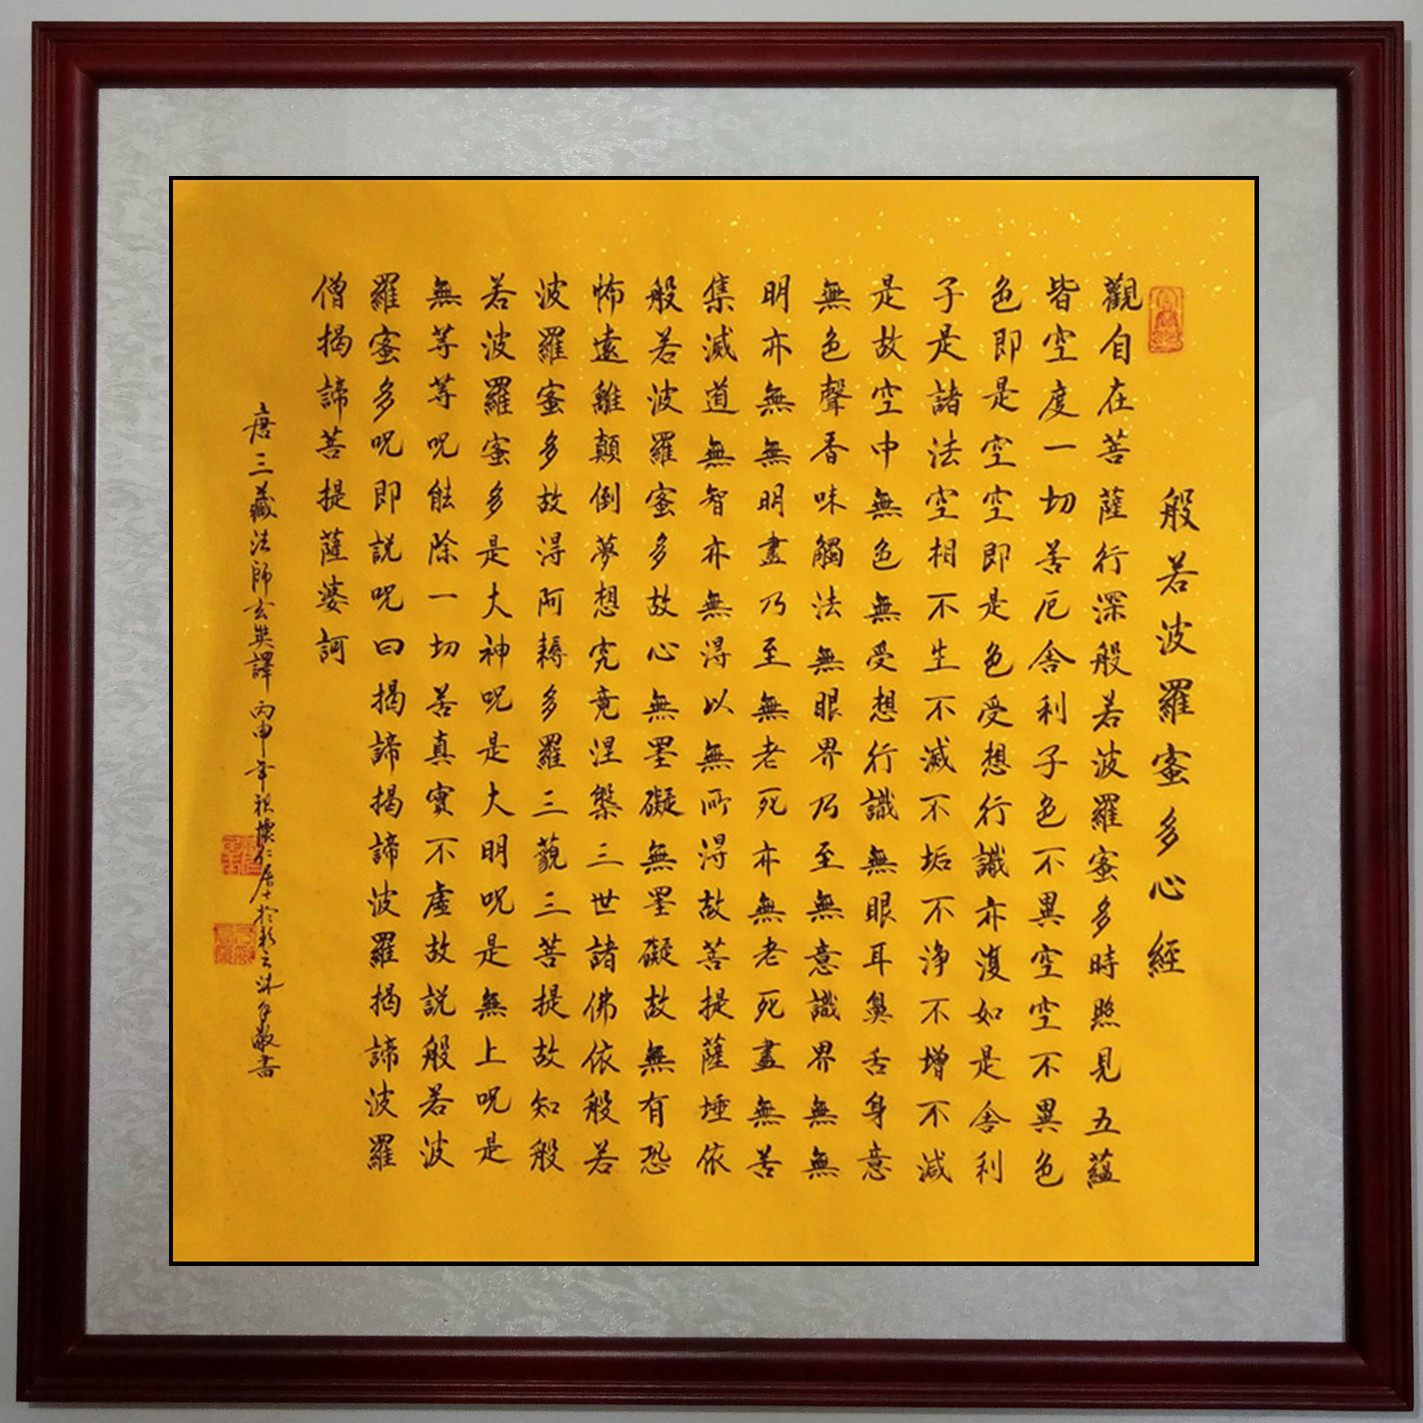 般若波羅蜜多心經
觀自在菩薩行深般若波羅蜜多時照見五蘊
皆空度一切苦厄舍利子色不異空空不異色
色即是空空即是色受想行識亦復如是舍利
子是諸法空相不生不滅不垢不淨不增不減
是故空中無色無受想行識無眼耳鼻舌身意
無色聲香味觸法無眼界乃至無意識界無無
明亦無無明盡乃至無老死亦無老死盡無苦
集滅道無智亦無得以無所得故菩提薩埵依
般若波羅蜜多故心無罣礙無罣礙故無有恐
怖遠離顛倒夢想究竟涅槃三世諸佛依般若
波羅蜜多故得阿耨多羅三藐三菩提故知般
若波羅蜜多是大神呪是大明呪是無上呪是
無等等呪能除一切苦真實不虛故説般若波
羅蜜多呪即説呪曰揭諦揭諦波羅揭諦波羅
僧揭諦菩提薩婆訶
唐三藏法師玄奘譯 丙申年秋懷仁居士於沐手敬書